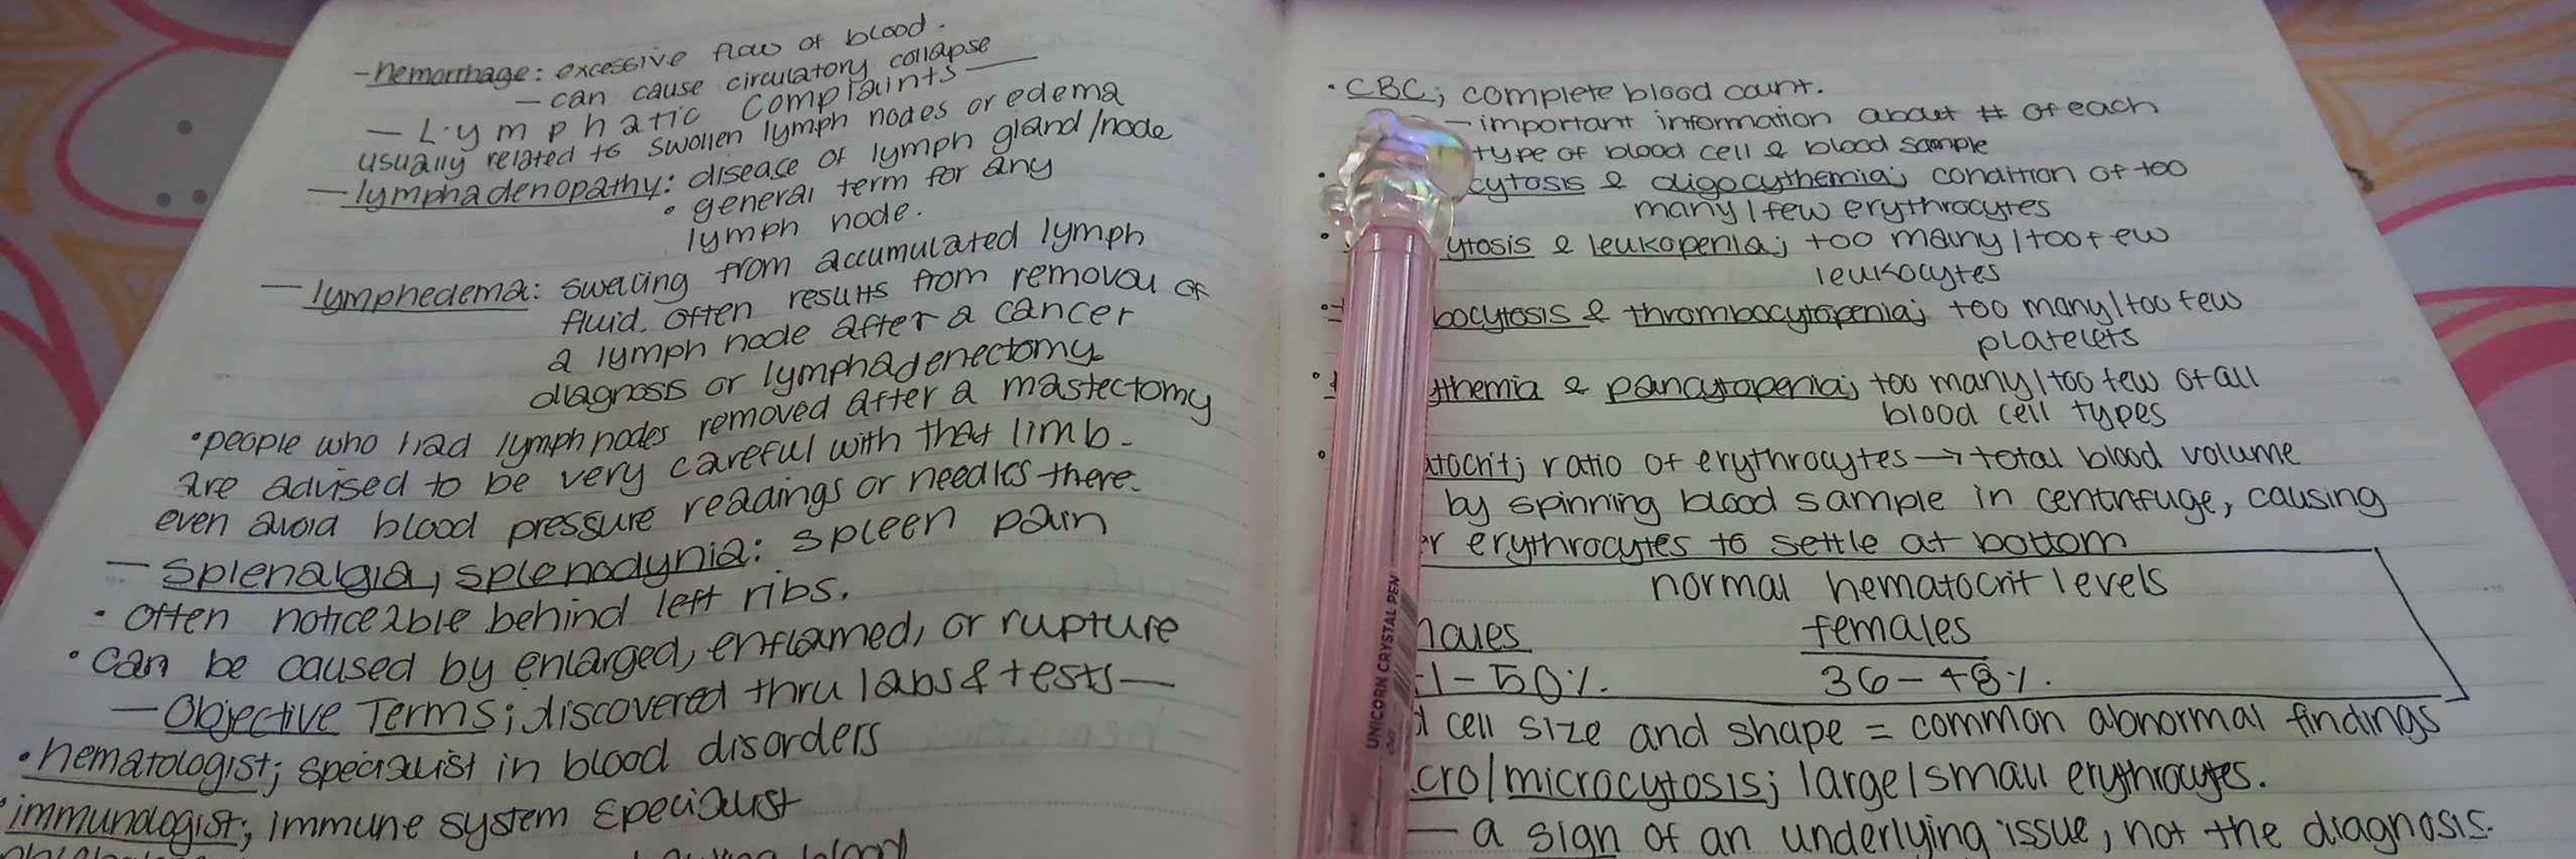 -hemorrhage: excessive flow of blood.
- can cause circulatory collapse
- Lymphatic Complaints -
usually related to swollen lymph nodes or edema
- lymphadenopathy: disease of lymph gland/node
• general term for any
lymph node.
- lymphedema: swelling from accumulated lymph
fluid. often results from removal of
a lymph node after a cancer
diagnosis or lymphadenectomy.
•people who had lymph nodes removed after a mastectomy
are advised to be very careful with that limb-
even avoid blood pressure readings or needles there.
- splenalgia, splenodynia: spleen pain
• often noticeable behind left ribs.
• can be caused by enlarged, enflamed, or rupture
- Objective Terms; discovered thru labs & tests-
• hematologist; specialist in blood disorders
• immunologist; immune system specialist
blood
• CBC; complete blood count.
- important information about # of each
type of blood cell & blood sample
cytosis & oligocythemia; condition of too
many/few erythrocytes
ytosis & leukopenia; too many/too few
leukocytes
bocytosis & thrombocytopenia; too many/too few
platelets
ythemia & pancytopenia; too many/too few of all
blood cell types
atocrit; ratio of erythrocytes → total blood volume
by spinning blood sample in centrifuge, causing
er erythrocytes to settle at bottom
normal hematocrit levels
males females
1-50%. 36-48%.
cell size and shape = common abnormal findings
cro/microcytosis; large/small erythrocytes.
- a sign of an underlying issue, not the diagnosis.
UNICORN CRYSTAL PEN